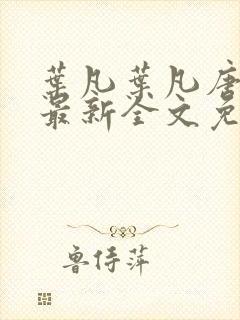 葉凡葉凡唐
最新全文免
魯侍萍